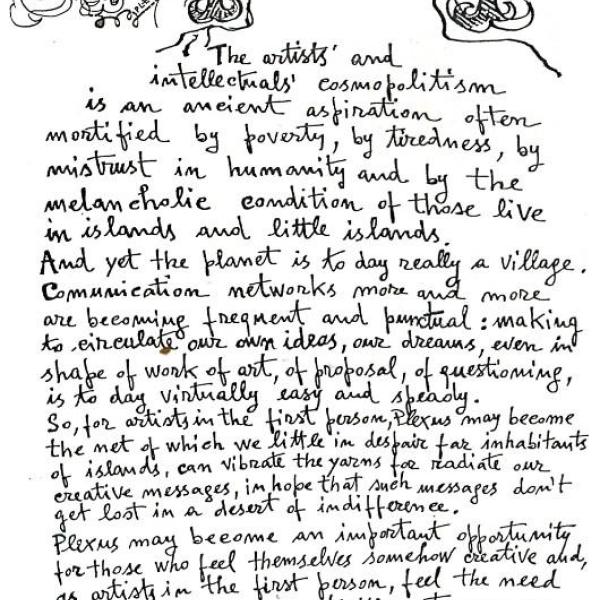 The artists' and
intellectuals' cosmopolitism
is an ancient aspiration often
mortified by poverty, by tiredness, by
mistrust in humanity and by the
melancholic condition of those live
in islands and little islands.
And yet the planet is to day really a village.
Comunication networks more and more
are becoming frequent and punctual: making
to circulate our own ideas, our dreams, even in
shape of work of art, of proposal, of questioning,
is to day virtually easy and speady.
So, for artists in the first person, Plexus may become
the net of which we little in despair far inhabitants
of islands, can vibrate the yarns for radiate our
creative messages, in hope that such messages don't
get lost in a desert of indifference.
Plexus may become an important opportunity
for those who feel themselves somehow creative and,
as artists in the first person, feel the need